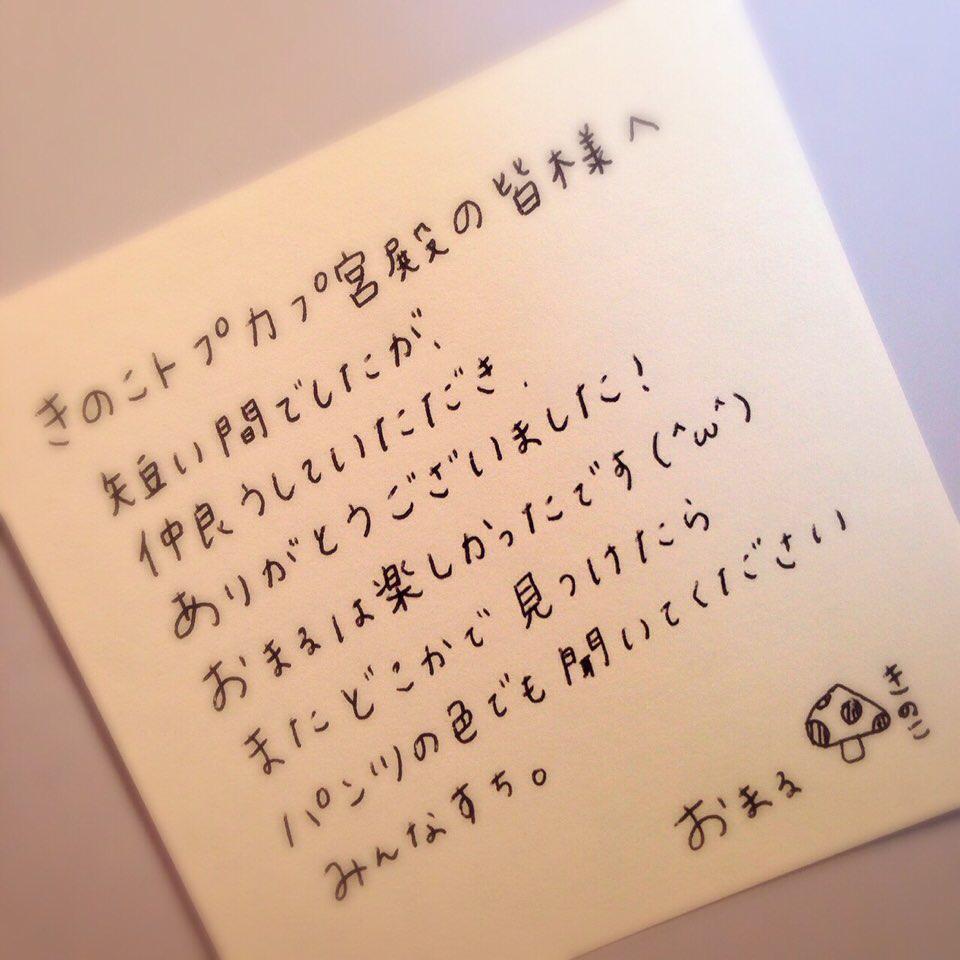 きのこトプカプ宮殿の皆様へ
短い間でしたが、
仲良うしていただき、
ありがとうございました!
おまるは楽しかったです(^ω^)
またどこかで見つけたら
パンツの色でも聞いてください
みんなすち。
おまる
きのこ